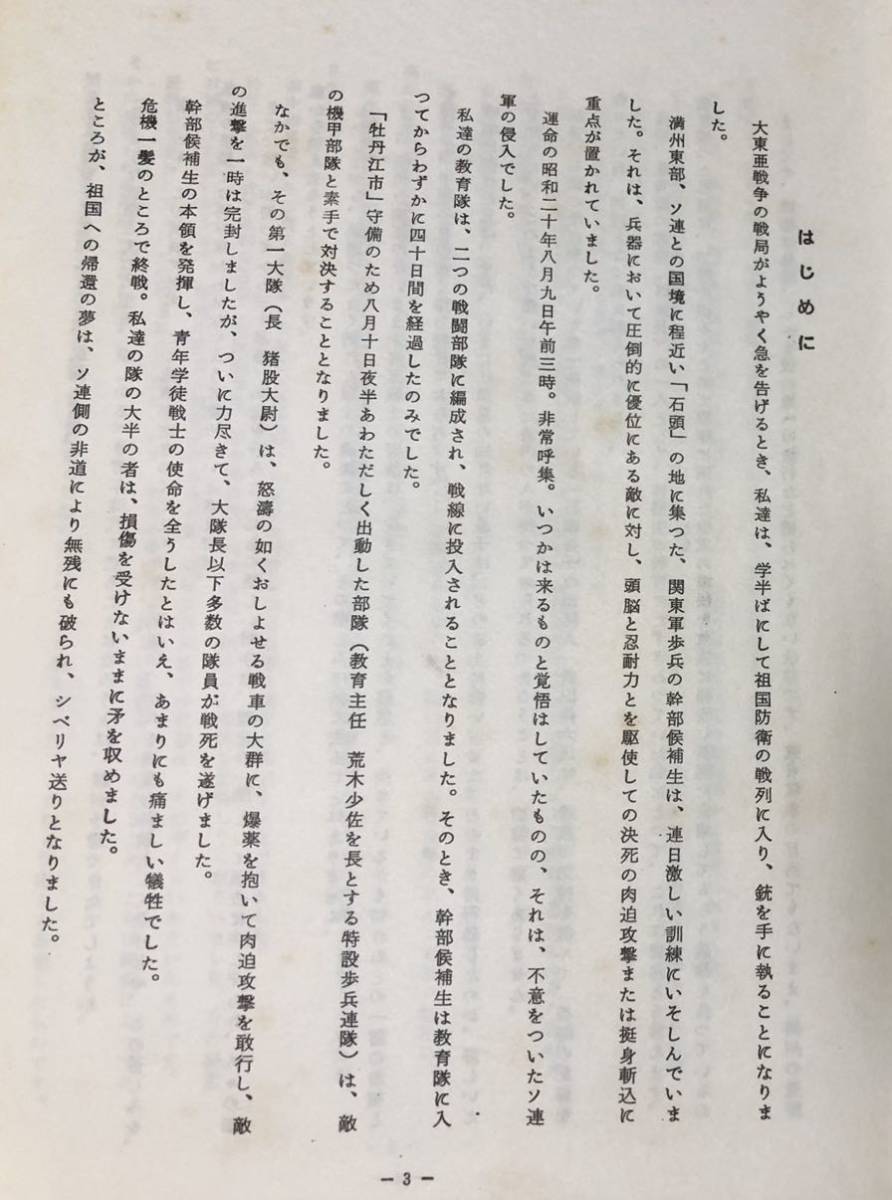 はじめに
大東亜戦争の戦局がようやく急を告げるとき、私達は、学半ばにして祖国防衛の戦列に入り、銃を手に執ることになりま
した。
満州東部、ソ連との国境に程近い「石頭」の地に集つた、関東軍歩兵の幹部候補生は、連日激しい訓練にいそしんでいま
した。それは、兵器において圧倒的に優位にある敵に対し、頭脳と忍耐力とを駆使しての決死の肉迫攻撃または挺身斬込に
重点が置かれていました。
運命の昭和二十年八月九日午前三時。非常呼集。いつかは来るものと覚悟はしていたものの、それは、不意をついたソ連
軍の侵入でした。
私達の教育隊は、二つの戦闘部隊に編成され、戦線に投入されることとなりました。そのとき、幹部候補生は教育隊に入
つてからわずかに四十日間を経過したのみでした。
「牡丹江市」守備のため八月十日夜半あわただしく出動した部隊（教育主任　荒木少佐を長とする特設歩兵連隊）は、敵
の機甲部隊と素手で対決することとなりました。
なかでも、その第一大隊（長　猪股大尉）は、怒濤の如くおしよせる戦車の大群に、爆薬を抱いて肉迫攻撃を敢行し、敵
の進撃を一時は完封しましたが、ついに力尽きて、大隊長以下多数の隊員が戦死を遂げました。
幹部候補生の本領を発揮し、青年学徒戦士の使命を全うしたとはいえ、あまりにも痛ましい犠牲でした。
危機一髪のところで終戦。私達の隊の大半の者は、損傷を受けないままに矛を収めました。
ところが、祖国への帰還の夢は、ソ連側の非道により無残にも破られ、シベリヤ送りとなりました。
— 3 —